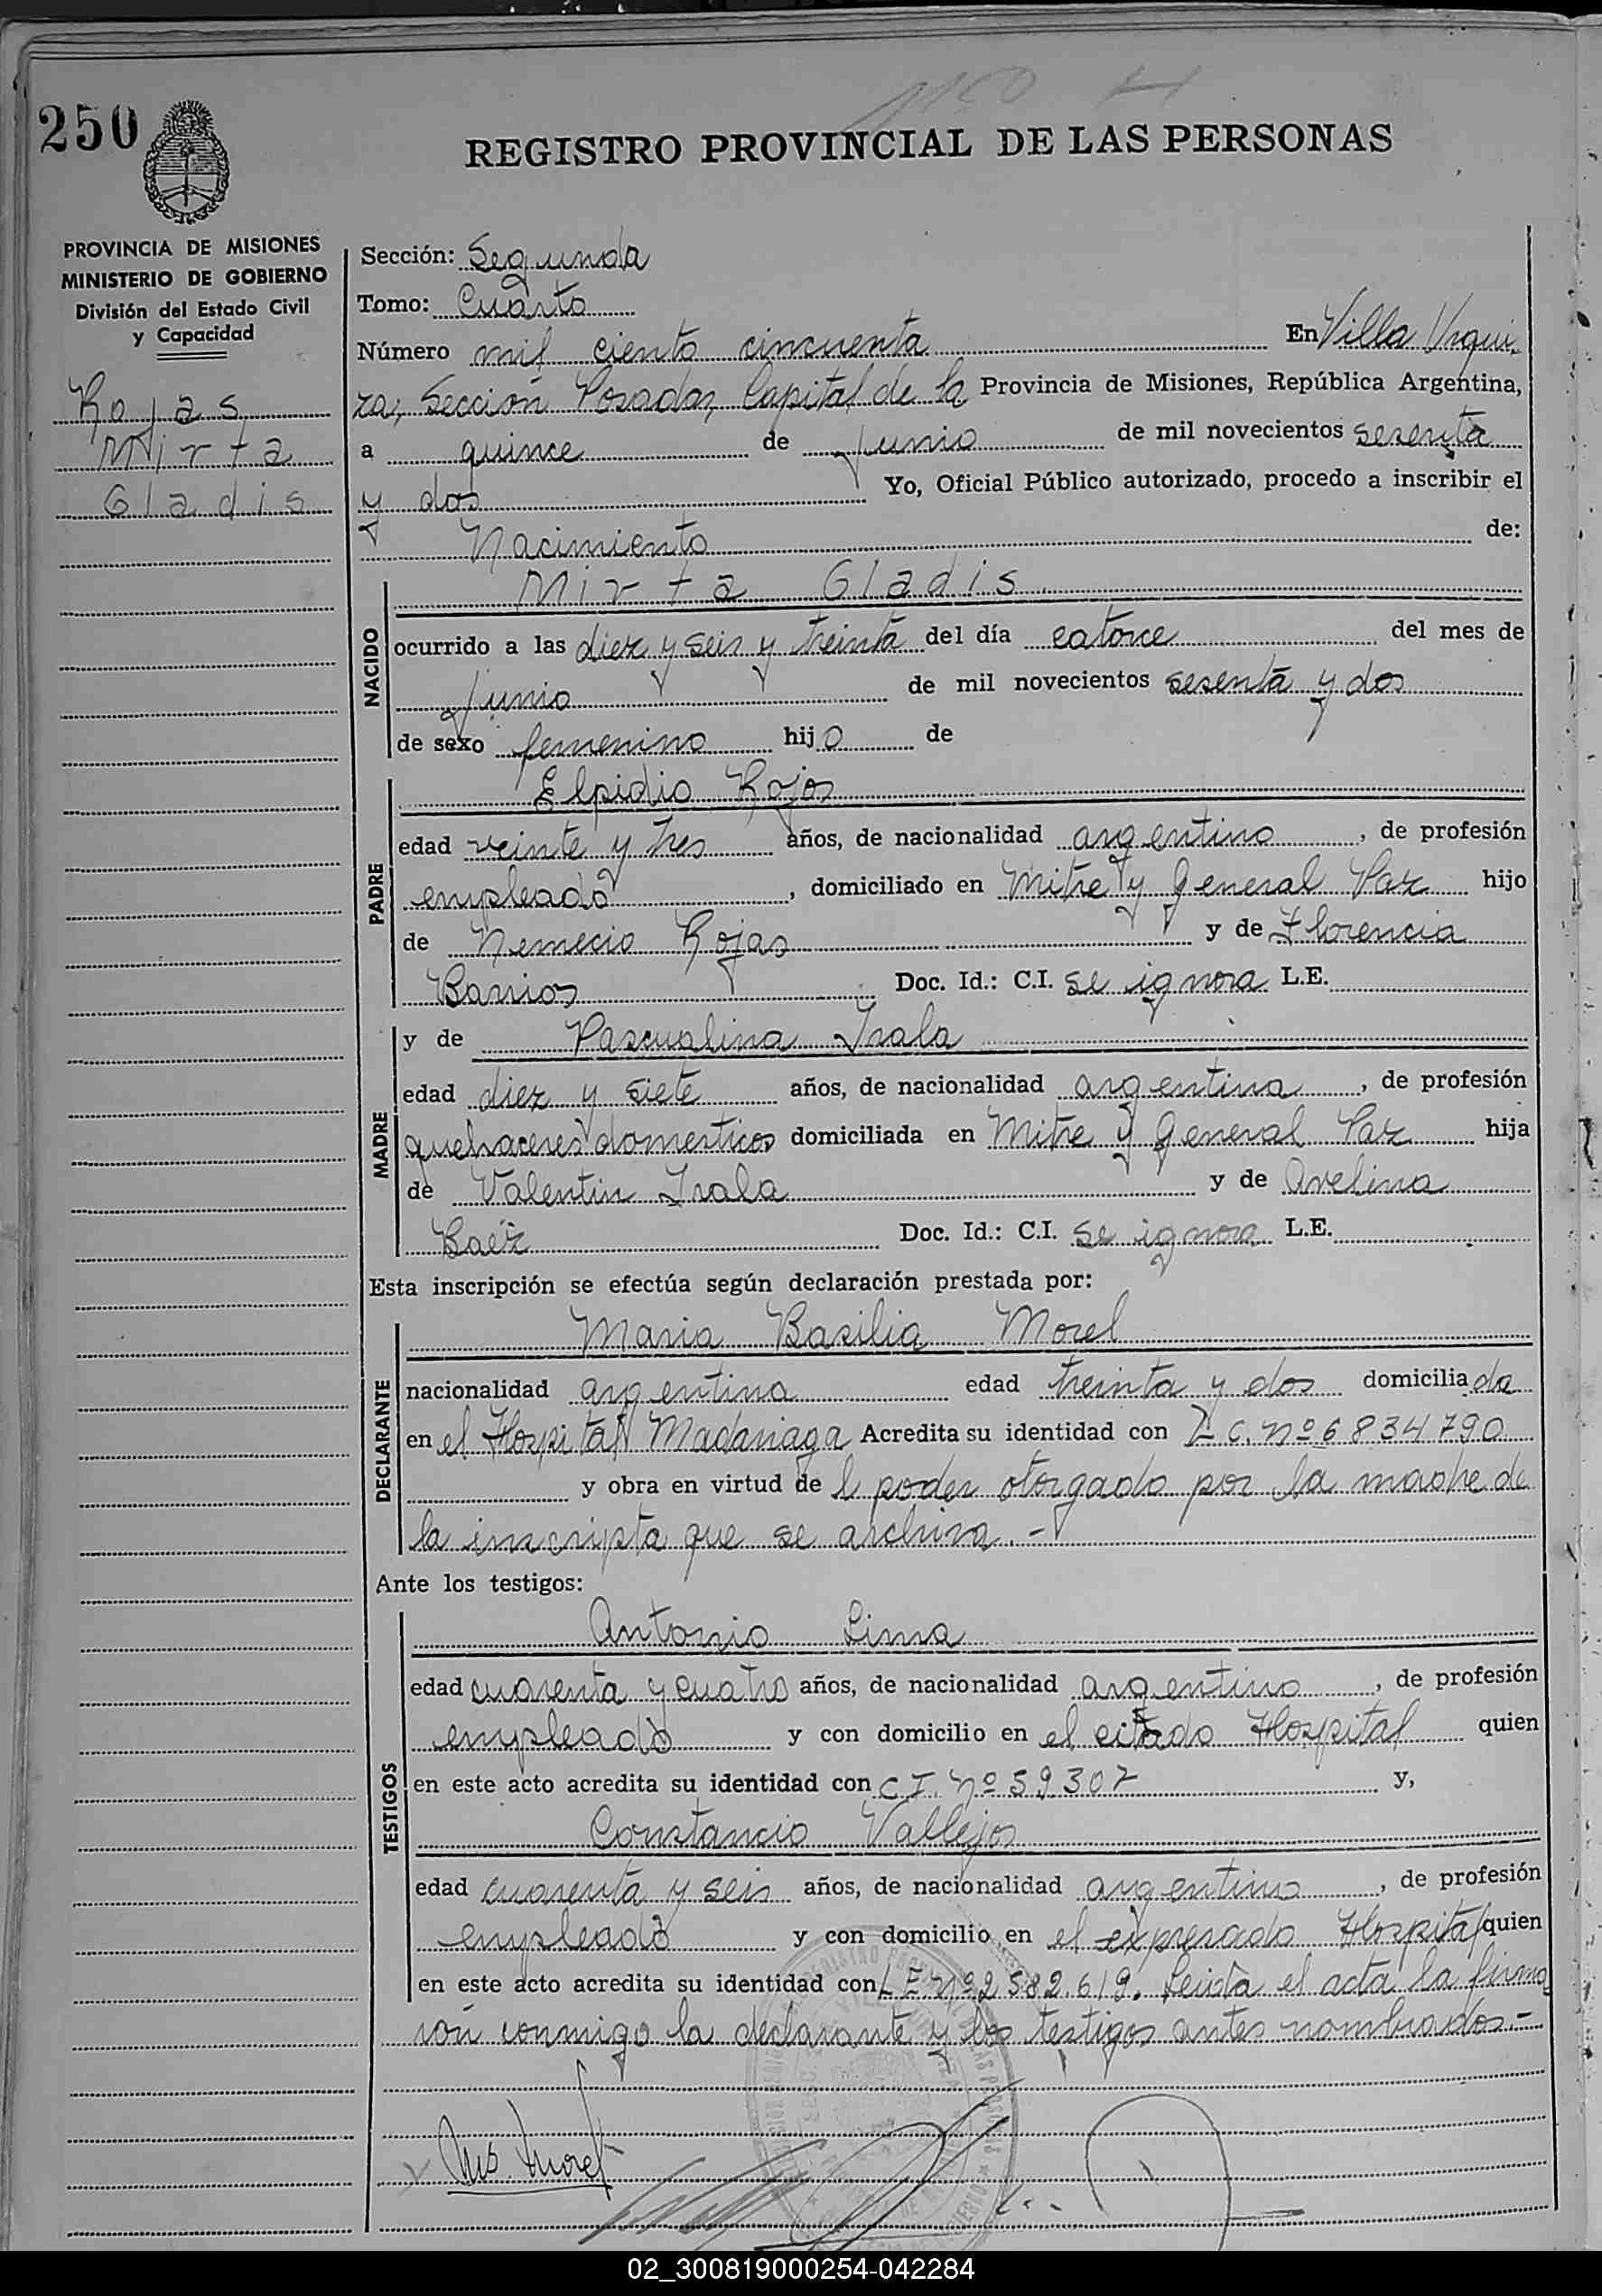 1150
250
REGISTRO PROVINCIAL DE LAS PERSONAS
PROVINCIA DE MISIONES
MINISTERIO DE GOBIERNO
División del Estado Civil
y Capacidad
Rojas
Mirta
Gladis
Sección: Segunda
Tomo: Cuarto
Número mil ciento cincuenta En Villa Urqui-
za, Sección Posadas, Capital de la Provincia de Misiones, República Argentina,
a quince de junio de mil novecientos sesenta
y dos Yo, Oficial Público autorizado, procedo a inscribir el
Nacimiento de:
NACIDO
Mirta Gladis
ocurrido a las diez y seis y treinta del día catorce del mes de
junio de mil novecientos sesenta y dos
de sexo femenino hijo de
PADRE
Elpidio Rojas
edad veinte y tres años, de nacionalidad argentino, de profesión
empleado, domiciliado en Mitre y General Paz hijo
de Nemecio Rojas y de Florencia
Barrios Doc. Id.: C.I. se ignora L.E.
MADRE
y de Pascualina Irala
edad diez y siete años, de nacionalidad argentina, de profesión
quehaceres domesticos domiciliada en Mitre y General Paz hija
de Valentin Irala y de Avelina
Baéz Doc. Id.: C.I. se ignora L.E.
Esta inscripción se efectúa según declaración prestada por:
DECLARANTE
Maria Basilia Morel
nacionalidad argentina edad treinta y dos domiciliada
en el Hospital Madariaga Acredita su identidad con L C. Nº 6834790
y obra en virtud de l poder otorgado por la madre de
la inscripta que se archiva.-
Ante los testigos:
TESTIGOS
Antonio Lima
edad cuarenta y cuatro años, de nacionalidad argentino, de profesión
empleado y con domicilio en el citado Hospital quien
en este acto acredita su identidad con C I. Nº 59307 y,
Constancio Vallejos
edad cuarenta y seis años, de nacionalidad argentino, de profesión
empleado y con domicilio en el expresado Hospital quien
en este acto acredita su identidad con L E Nº 2582.619. Leida el acta la firma-
ron conmigo la declarante y los testigos antes nombrados.-
Morel
02_300819000254-042284